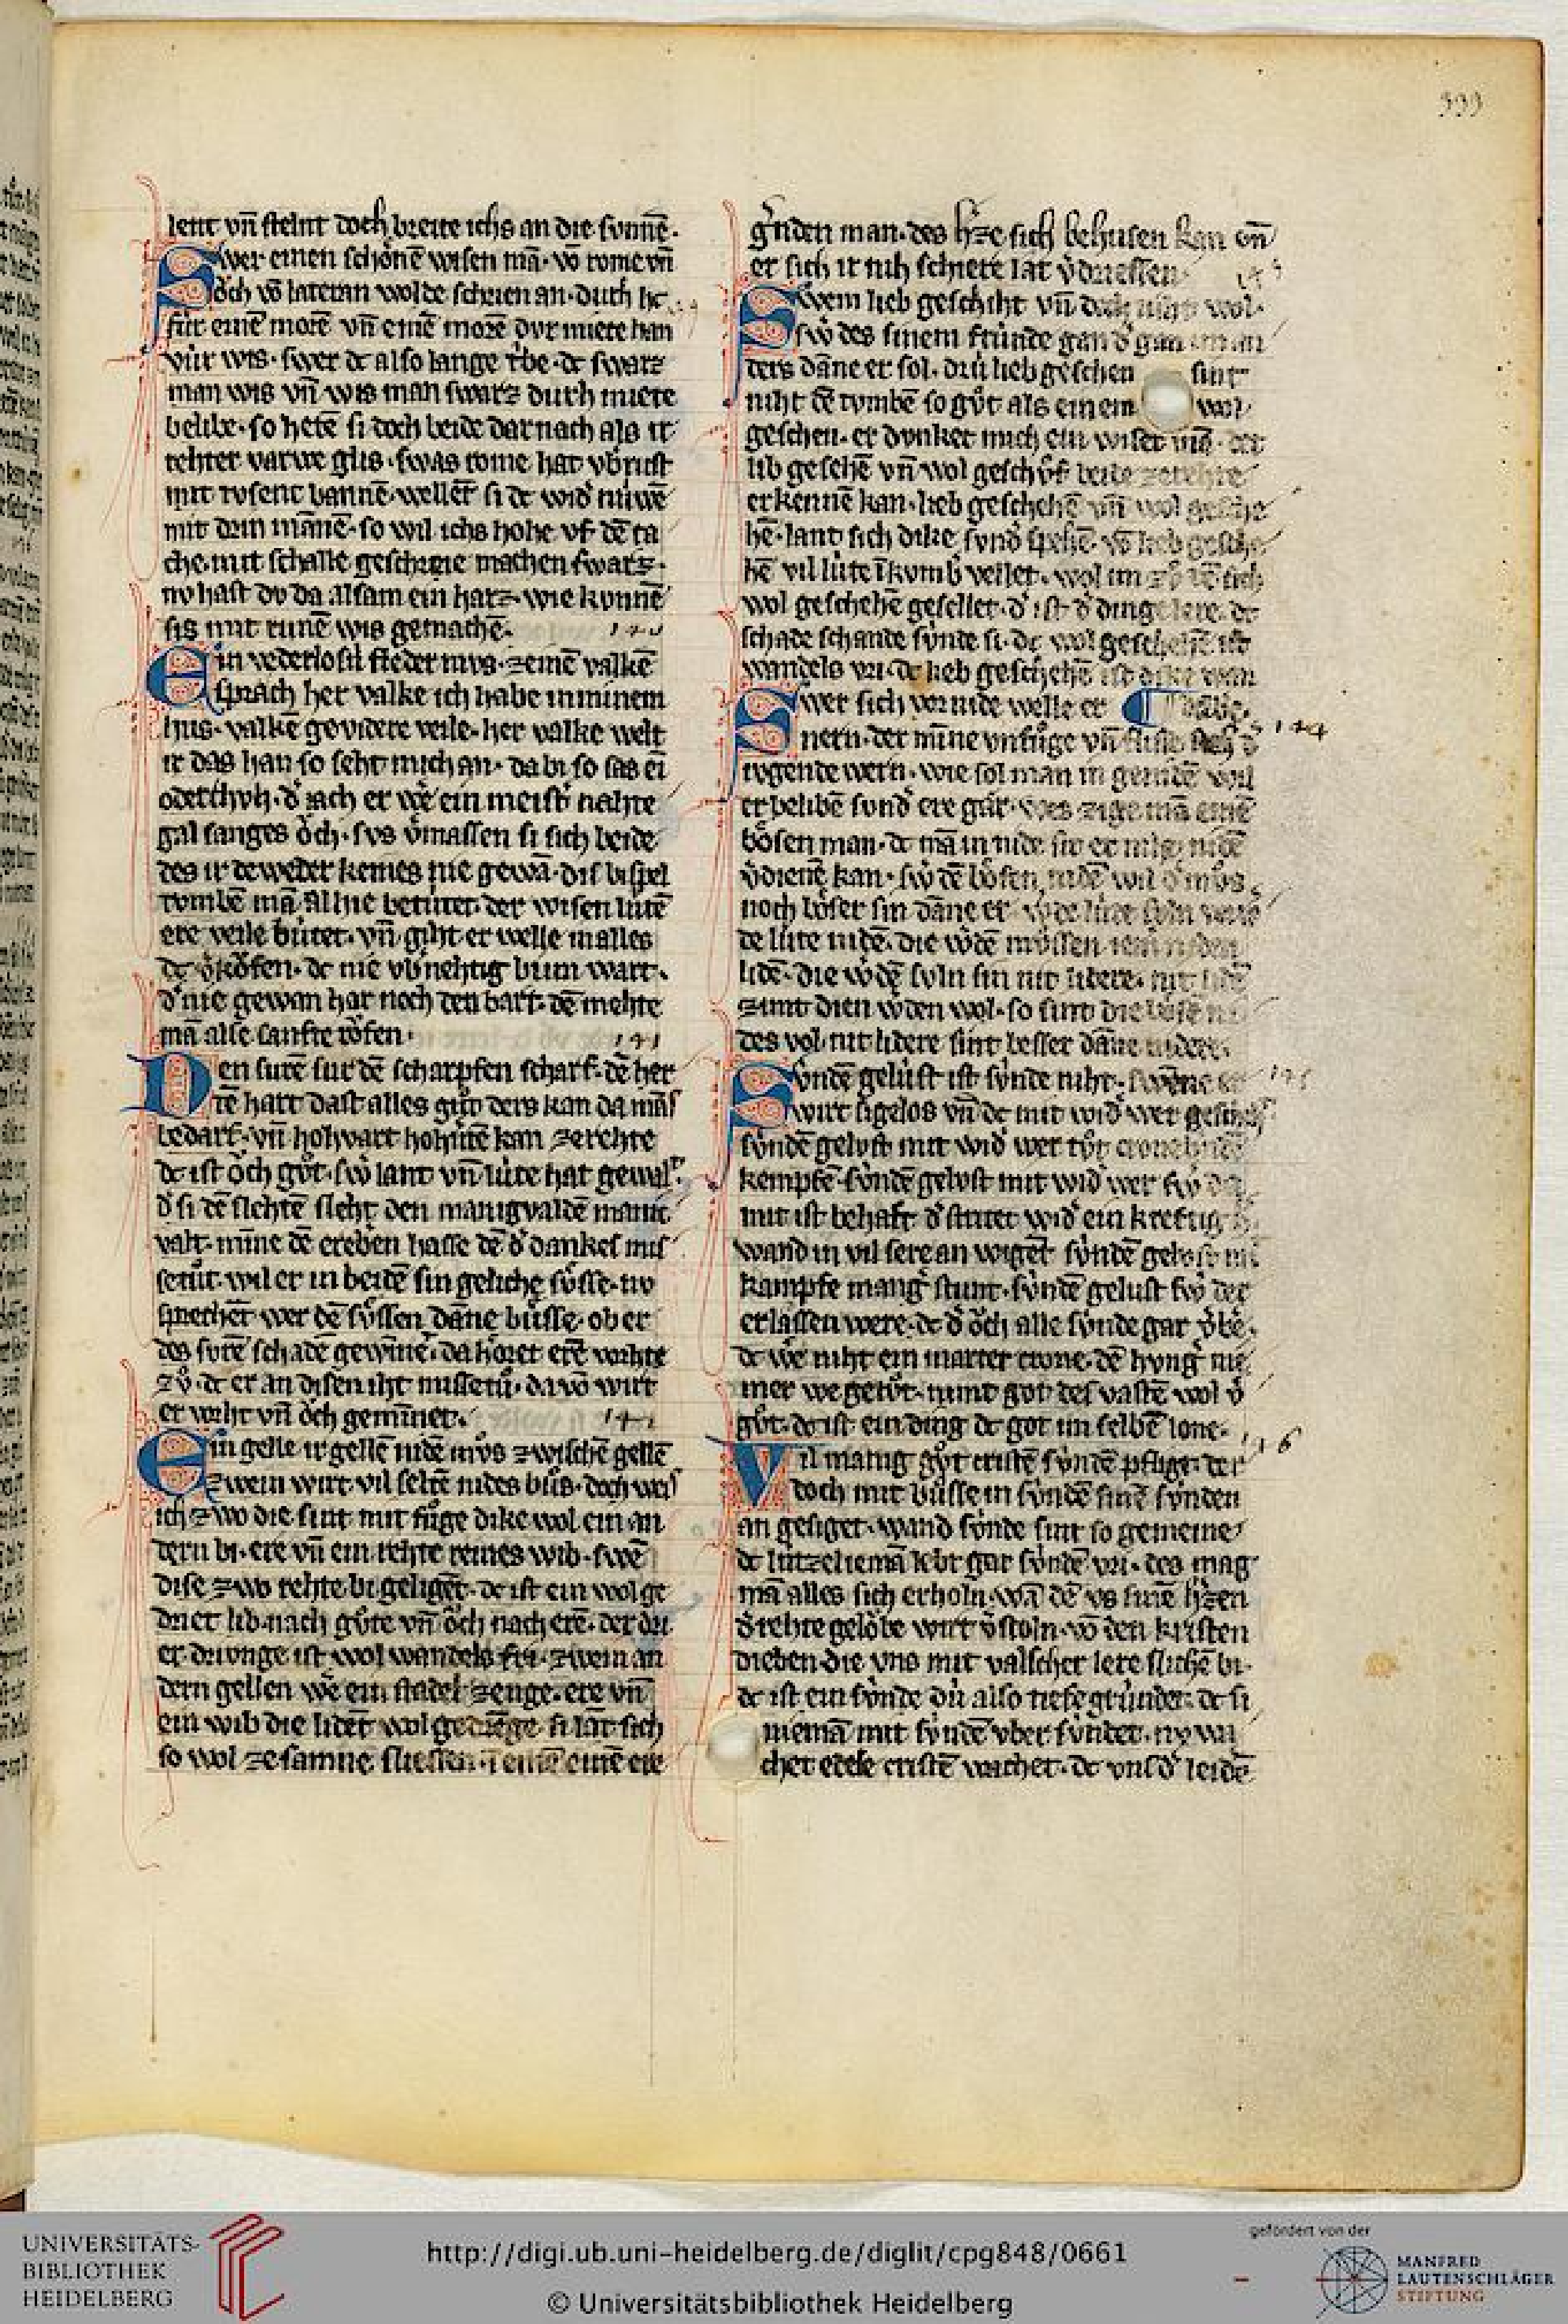 333
lent vn̄ steint doch breite ichs an die sunnē.
Swer einen schonē wisen mā. vō rome vn̄
och vō lateran wolde schrien an. durh
für einē morē vn̄ einē morē dvr miete han
vür wis. swer dc also lange tribe. dc swarz
man wis vn̄ wis man swarz durh miete
belibe. so hetē si doch beide dar nach als ir
rehter varwe glis. swas rome hat vb rust
mit rosent bannē. wellēt si dc wid niwē
mit drin mānē. so wil ichs hohe vf dē ta
che. mit schalle geschreie machen swarz.
nv hast dv da alsam ein harz. wie kvnnē
sis mit runē wis gemachē. 140
Ein vederlosü fleder mvs. zeinē valkē
sprach her valke ich habe in minem
hus. valkē gevidere veile. her valke welt
ir das han so seht mich an. da bi so sas ei
oderchvh. d iach er we ein meist nahte
gal sanges och. svs vmassen si sich beide
des ir deweder keines nie gewā. dis bispel
tvmbē mā alhie betütet. der wisen lütē
ere veile bütet. vn̄ giht er welle in alles
dc vkofen. dc nie vb nehtig bvm wart.
d nie gewan har noch den bart. dē mehte
mā alse sanfte rofen. 141
Den surē sur dē scharpfen scharf. dē her
tē hart dast alles gut ders kan da mās
bedarf. vn̄ hohvart hohütē kan ze rehte
dc ist och gut. sw lant vn̄ lüte hat gewalt.
d si dē slehtē sleht den manigvaldē manic
valt. minne dē erebern hasse dē d dankes mis
setut. wil er in beidē sin geliche susse. nv
sprechēt wer dē sussen dāne büsse. ob er
des svrē schadē gewinnē. da horet erē vorhte
zu. dc er an disen iht missetu. da vō wirt
er vorht vn̄ och geminnet. 142
Ein gelle ir gellē nidē mus zwischē gellē
zwein wirt vil seltē nides bus. doch weis
ich zwo die sint mit fuge dike wol ein an
dern bi. ere vn̄ ein rehte reines wib. swē
dise zwo rehte bi geligēt. dc ist ein wol ge
driet lib. nach gute vn̄ och nach erē. der dri
er drivnge ist wol wandels fri. zwein an
dern gellen we ein stadel ze enge. ere vn̄
ein wib die lidēt wol gedrēge. si lāt sich
so wol ze samne sliessen. in einē ere
gernden man. des hze sich behusen kan vn̄
er sich ir nih schiere lat vdriessen. 143
Swem lieb geschiht vn̄ doch niht wol.
sw des sinem fründe gan d gan im an
ders dāne er sol. drü lieb geschen sint
niht dē tvmbē so gut als ein em wol
geschen. er dvnket mich ein wiser mā. der
lib geschē vn̄ wol geschehē beide ze rehte
erkennē kan. lieb geschehē vn̄ wol gesche
hē. lant sich dike svnd spehē. vō lieb gesche
hē vil lüte ī kvmb vellet. wol im zu dē sich
wol geschehē gesellet. d ist d dinge lere. dc
schade schande sünde si. dc wol geschehē ist
wandels vri. dc lieb geschehē ist dike wan
Swer sich vor nide welle er ¶ delbere.
nern. der mīne vnfuge vn̄ flisse sich d 144
tvgende wern. wie sol man in genidē wil
er belibē svnd ere gar. wes zige mā einē
bosen man. dc mā in nide. sw er nilg nidē
vdienē kan. sw dē bosen nidē wil d mus
noch boser sin dāne er.
de lüte nidē. die wdē mussen
lidē. die wdē svln sin nit lidere. nit lidē
zimt dien wden wol. so sint die bosē ni
des vol. nit lidere sint besser dāne nidere.
Svndē gelüst ist sünde niht. swēne er 145
wirt sigelos vn̄ dc mit wid wer geschiht
sündē gelvst mit wid wer tut crone
kempfē. sündē gelvst mit wid wer sw da
mit ist behaft d stritet wid ein kreftig h
wand in vil sere an wiget sündē gelust
kampfe mang stunt. sündē gelust sw der
erlassen were. dc d och alle sünde gar vbe.
dc we niht ein marter crone. dē hvng nie
mer we getut. nimt got des vastē wol v
gut. do ist ein ding dc got im selbē lone.
Vil manig gut cristē sündē pfliget. der 146
doch mit büsse in sündē sinē sünden
an gesiget. wand sünde sint so gemeine
dc lützel iemā lebt gar sündē vri. des mag
mā alles sich erholn. wā dē vs sinē hzen
d rehte gelobe wirt vstoln. vō den kristen
dieben die vns mit valscher lere slichē bi.
dc ist ein sünde dü also tiefe gründet. dc si
niemā mit sündē vber sündet. nv wa
chet edele cristē wachet. dc vns d leidē
UNIVERSITÄTS-
BIBLIOTHEK
HEIDELBERG
http://digi.ub.uni-heidelberg.de/diglit/cpg848/0661
© Universitätsbibliothek Heidelberg
gefördert von der
MANFRED
LAUTENSCHLÄGER
STIFTUNG